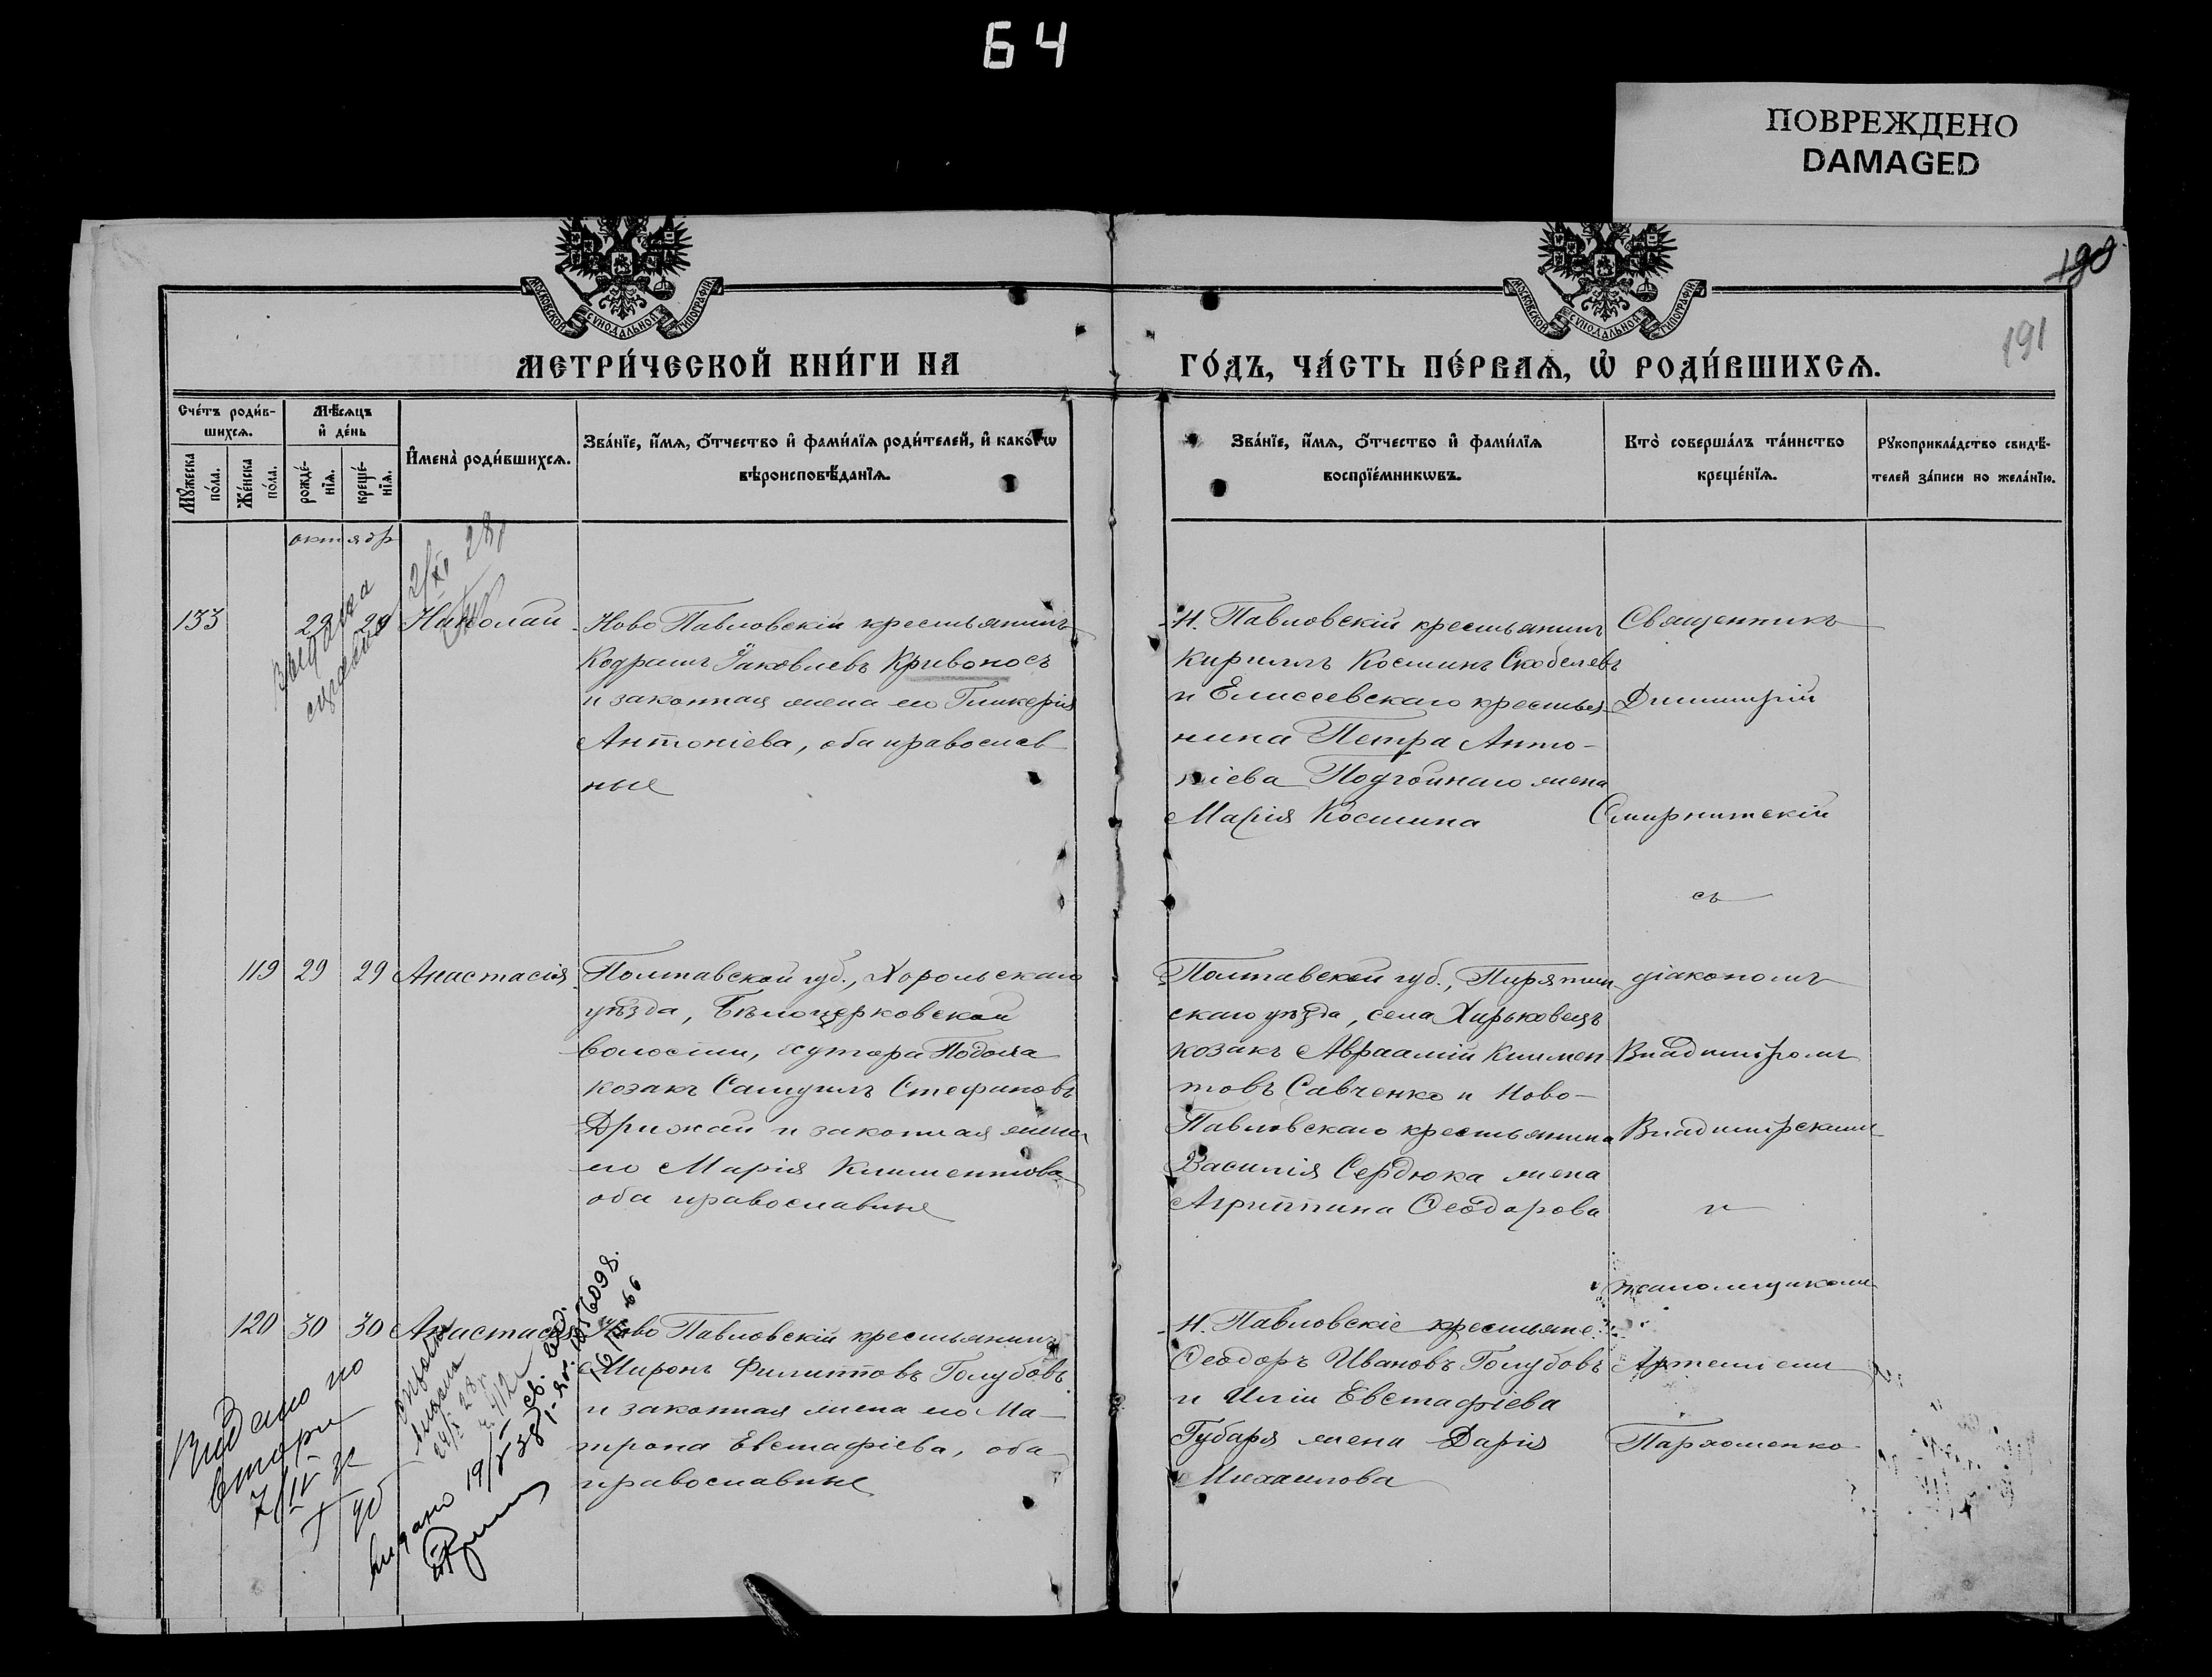 64
ПОВРЕЖДЕНО
DAMAGED
190
191
МОСКОВСКОЙ СѴНОДАЛЬНОЙ ТИПОГРАФІИ
МОСКОВСКОЙ СѴНОДАЛЬНОЙ ТИПОГРАФІИ
МЕТРИ́ЧЕСКОЙ КНИ́ГИ НА
ГО́ДЪ, ЧА́СТЬ ПЕ́РВАѦ, Ѡ҆ РОДИ́ВШИХСѦ.
Сче́тъ роди́в-
шихсѧ.
Мꙋ́жеска
по́ла.
Же́нска
по́ла.
Мѣ́сѧцъ
и҆ де́нь
рожде́-
нїѧ.
креще́-
нїѧ.
И҆мена̀ роди́вшихсѧ.
Зва́нїе, и҆́мѧ, ѻ҆́тчество и҆ фами́лїѧ роди́телей, и҆ како́гѡ
вѣроисповѣ́данїѧ.
Зва́нїе, и҆́мѧ, ѻ҆́тчество и҆ фами́лїѧ
воспрїе́мникѡвъ.
Кто̀ соверша́лъ та́инство
креще́нїѧ.
Рꙋкоприкла́дство свидѣ́-
телей за́писи по жела́нїю.
октябр
133
29 29 Николай
Ново Павловскій крестьянинъ
Кодратъ Іаковлевъ Кривоносъ
и законная жена его Гликерія
Антоніева, оба православ
ные
Н. Павловскій крестьянинъ
Кириллъ Косминъ Скобелевъ
и Елисеевскаго крестья-
нина Петра Анто-
ніева Подгойнаго жена
Марія Космина
Священникъ
Димитрій
Смирнитскій
съ
119 29 29 Анастасія
Полтавской губ., Хорольскаго
уѣзда, Бѣлоцерковской
волости, хутора Подола
козакъ Самуилъ Стефановъ
Дрижай и законная жена
его Марія Климентова
оба православные
Полтавской губ., Пирятин
скаго уѣзда, села Хирьковецъ
козакъ Авраамій Климен
товъ Савченко и Ново-
Павловскаго крестьянина
Василія Сердюка жена
Агриппина Ѳеодорова
діакономъ
Владиміромъ
Владимірскимъ
и
псаломщикомъ
Артеміемъ
Пархоменко
120 30 30 Анастасія
Ново Павловскій крестьянинъ
Миронъ Филипповъ Голубовъ
и законная жена его Ма-
трона Евстафіева, оба
православные
Н. Павловскіе крестьяне
Ѳеодоръ Ивановъ Голубовъ
и Иліи Евстафіева
Губаря жена Дарія
Михаилова
Видано по
вторн
видано 19/V 38